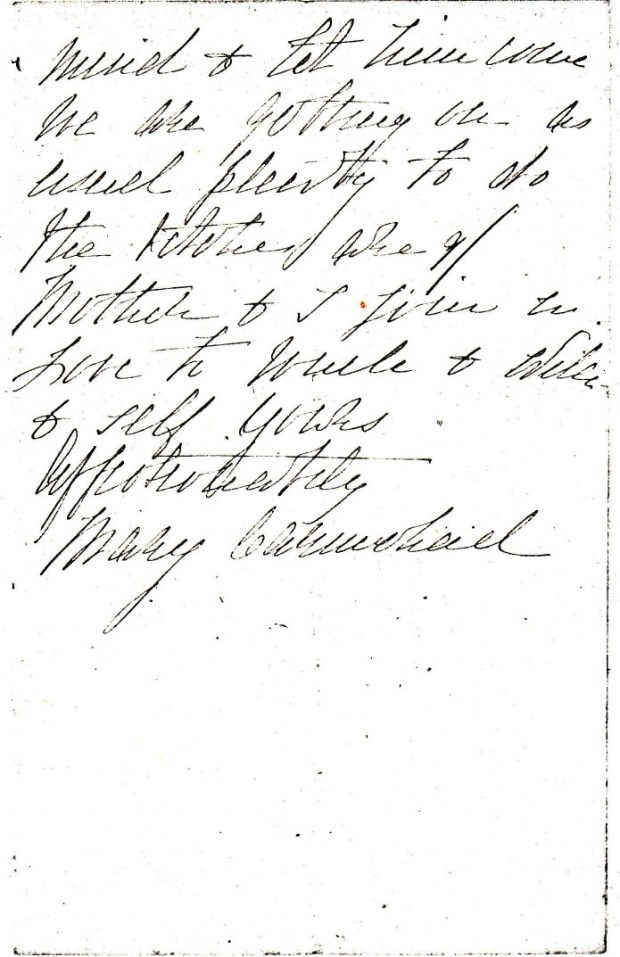 mind & let him come
We are getting on as
usual plenty to do
the Kitchen are of
Mother & I join in
Love to Uncle &
& self yours
Affectionately
Mary Carmichael